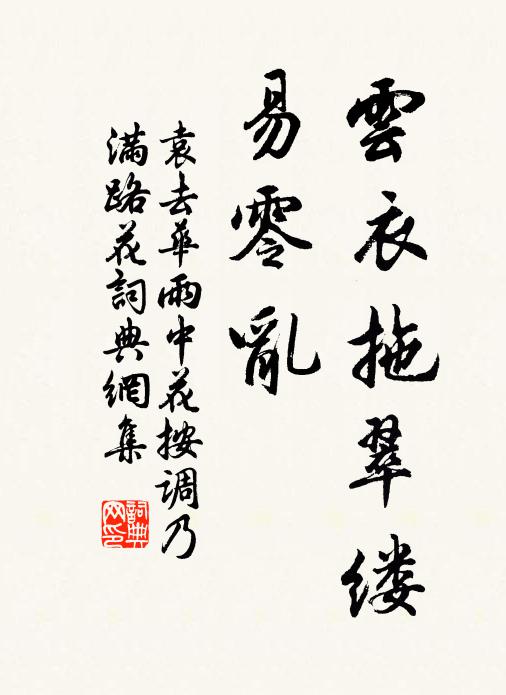 雲衣拖翠缕
易零亂
袁去華雨中花按調乃
滿路花詞典網集
詞典网印